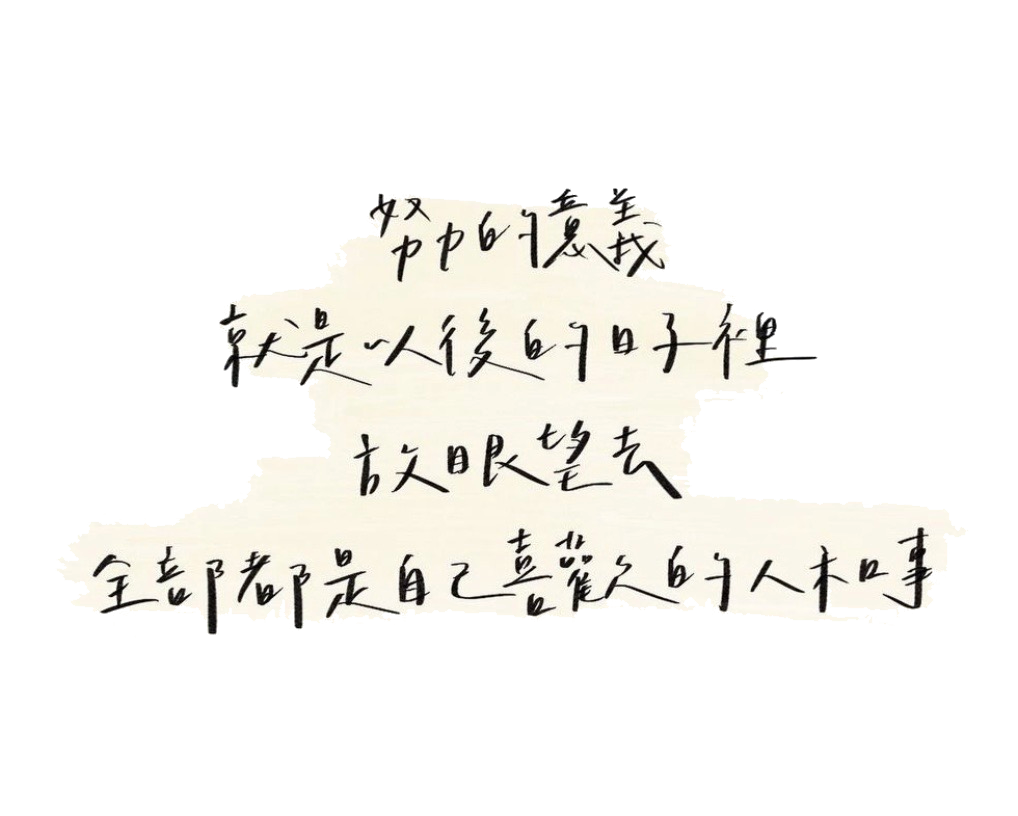 努力的意義
就是以後的日子裡
放眼望去
全部都是自己喜歡的人和事